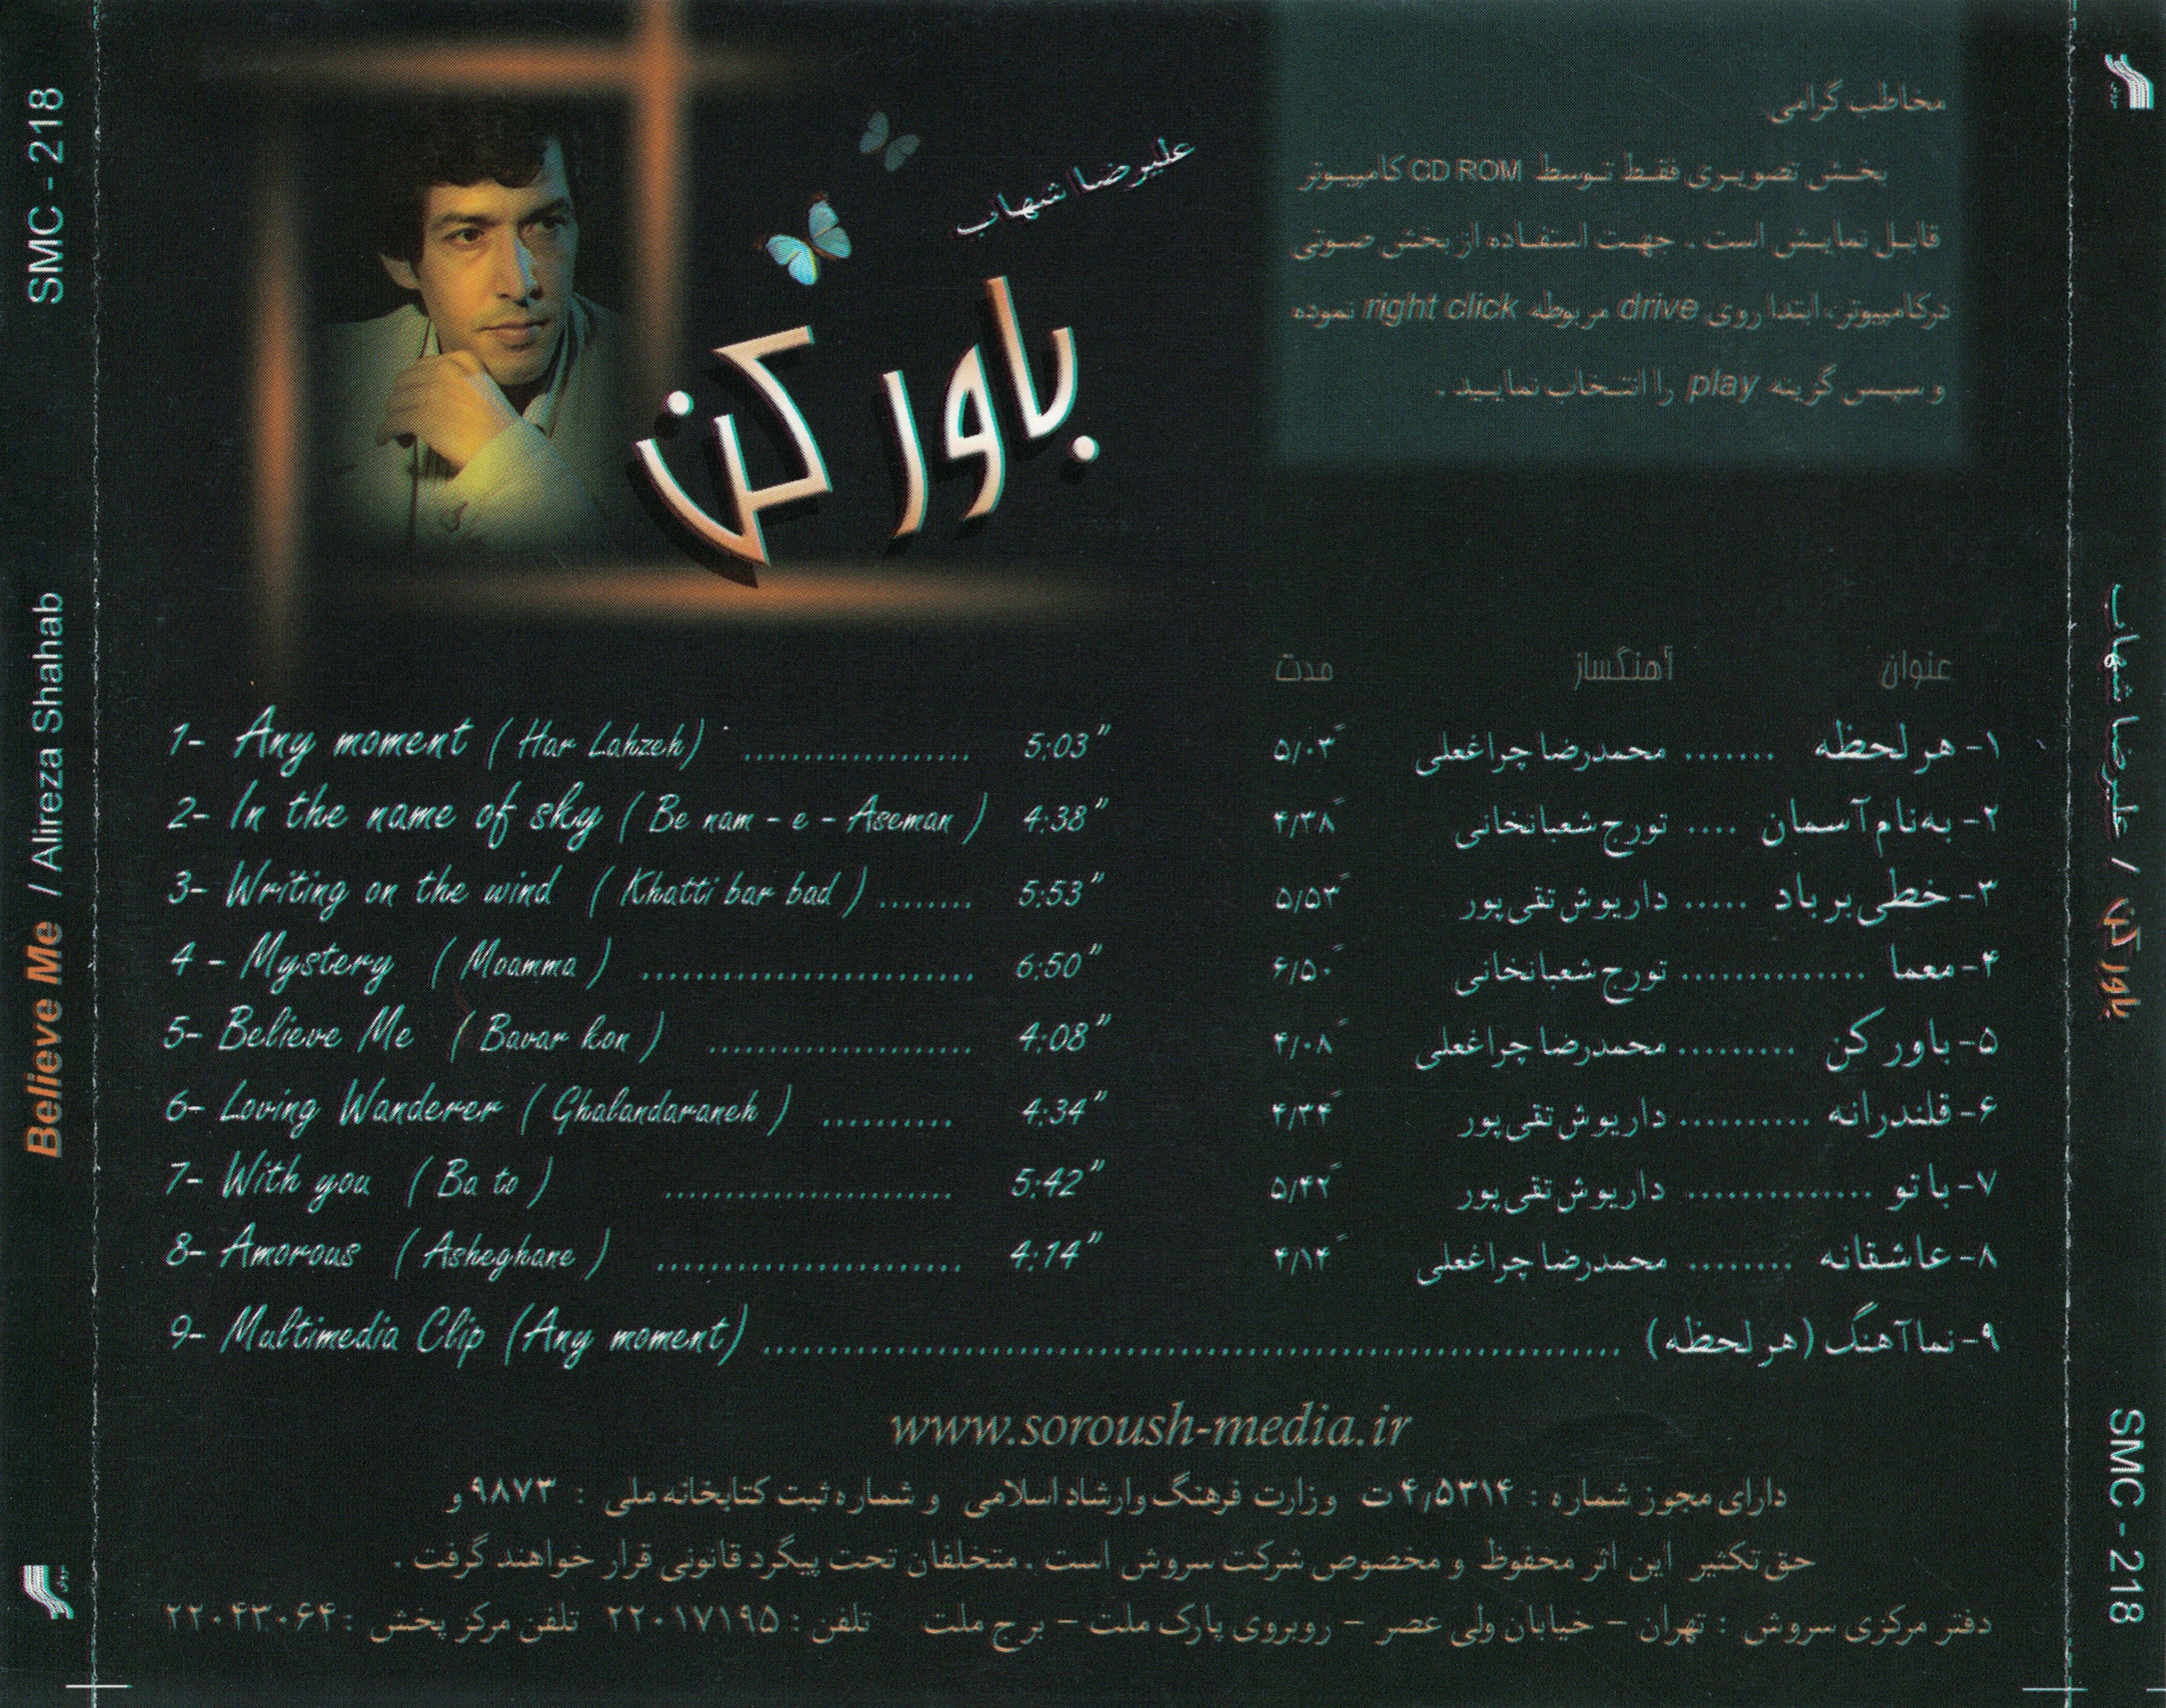 SMC - 218
Believe Me / Alireza Shahab
علیرضا شهاب
باور کن
مخاطب گرامی
بخش تصویری فقط توسط CD ROM کامپیوتر
قابل نمایش است . جهت استفاده از بخش صوتی
درکامپیوتر، ابتدا روی drive مربوطه right click نموده
و سپس گزینه play را انتخاب نمایید .
عنوان آهنگساز مدت
1- Any moment ( Har Lahzeh) ........................ 5:03"
2- In the name of sky ( Be nam - e - Aseman ) 4:38"
3- Writing on the wind ( Khatti bar bad ) ........ 5:53"
4 - Mystery ( Moamma ) ................................ 6:50"
5- Believe Me ( Bavar kon ) ......................... 4:08"
6- Loving Wanderer ( Ghalandaraneh ) .......... 4:34"
7- With you ( Ba to ) ........................... 5:42"
8- Amorous ( Asheghane ) ............................ 4:14"
۱- هر لحظه ....... محمدرضا چراغعلی ۵/۰۳ً
۲- به‌نام آسمان .... تورج شعبانخانی ۴/۳۸ً
۳- خطی بر باد ..... داریوش تقی‌پور ۵/۵۳ً
۴- معما .............. تورج شعبانخانی ۶/۵۰ً
۵- باور کن ......... محمدرضا چراغعلی ۴/۰۸ً
۶- قلندرانه .......... داریوش تقی‌پور ۴/۳۴ً
۷- با تو .............. داریوش تقی‌پور ۵/۴۲ً
۸- عاشقانه ........ محمدرضا چراغعلی ۴/۱۴ً
9- Multimedia Clip (Any moment) ........................ ۹- نماآهنگ (هر لحظه)
www.soroush-media.ir
دارای مجوز شماره : ۴٫۵۳۱۴ ت وزارت فرهنگ وارشاد اسلامی و شماره ثبت کتابخانه ملی : ۹۸۷۳ و
حق تکثیر این اثر محفوظ و مخصوص شرکت سروش است . متخلفان تحت پیگرد قانونی قرار خواهند گرفت .
دفتر مرکزی سروش : تهران - خیابان ولی عصر - روبروی پارک ملت - برج ملت تلفن : ۲۲۰۱۷۱۹۵ تلفن مرکز پخش : ۲۲۰۴۳۰۶۴
علیرضا شهاب / باور کن
SMC - 218
سروش